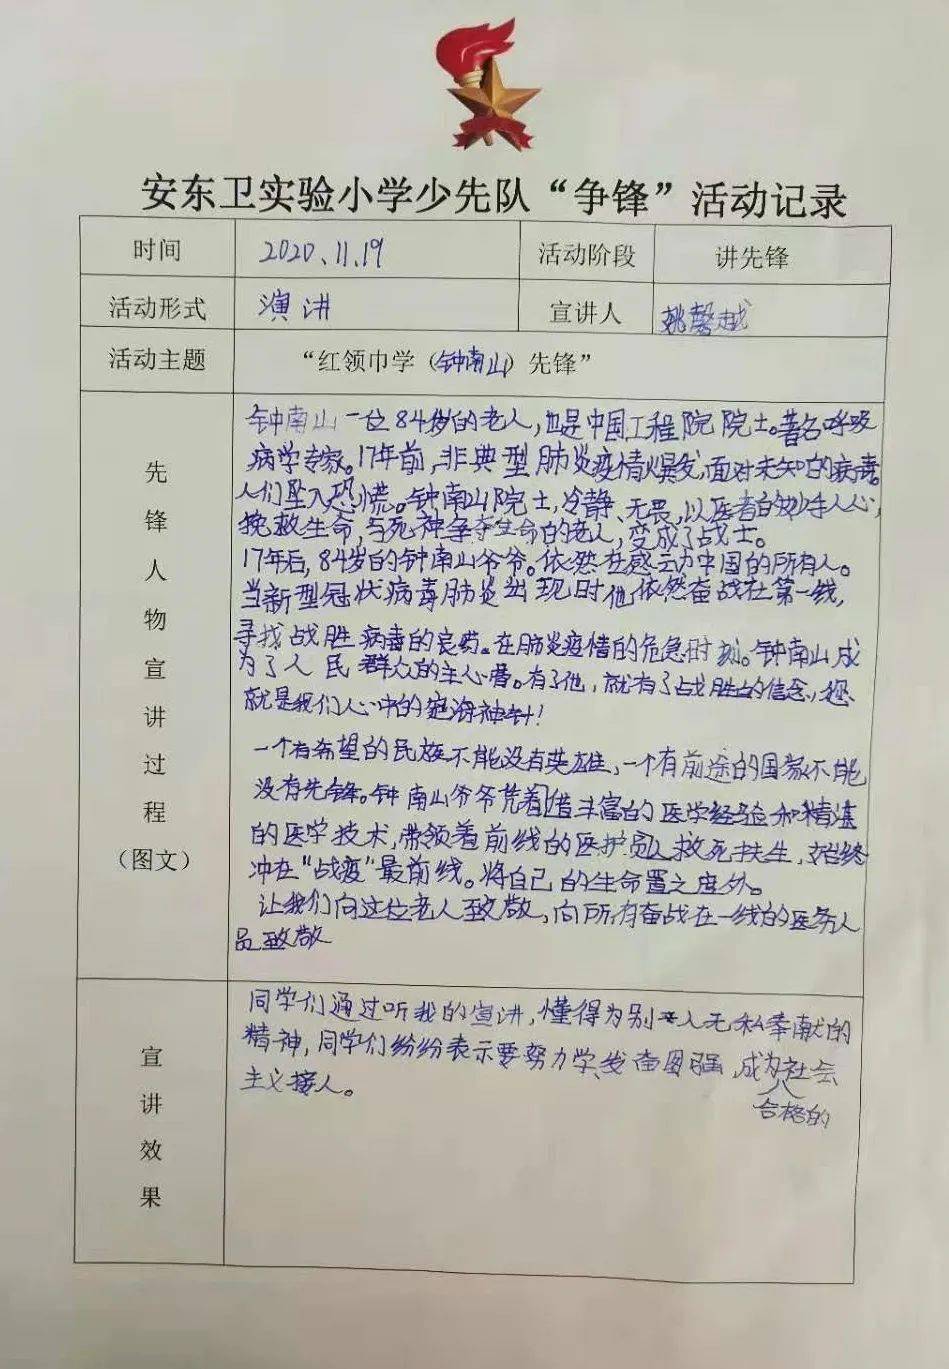 安东卫实验小学少先队“争锋”活动记录
时间 2020.11.19 活动阶段 讲先锋
活动形式 演讲 宣讲人 姚馨越
活动主题 “红领巾学（钟南山）先锋”
先锋人物宣讲过程（图文）
钟南山一位84岁的老人，也是中国工程院院士。著名呼吸
病学专家。17年前，非典型肺炎疫情爆发，面对未知的病毒。
人们坠入恐慌。钟南山院士，冷静、无畏，以医者的妙手人心，
挽救生命，与死神争夺生命的老人，变成了战士。
17年后，84岁的钟南山爷爷。依然在感动中国的所有人。
当新型冠状病毒肺炎出现时他依然奋战在第一线，
寻找战胜病毒的良药。在肺炎疫情的危急时刻。钟南山成
为了人民群众的主心骨。有了他，就有了战胜的信念，他
就是我们心中的定海神针！
一个有希望的民族不能没有英雄，一个有前途的国家不能
没有先锋。钟南山爷爷凭着借丰富的医学经验和精湛
的医学技术，带领着前线的医护员救死扶生，始终
冲在“战疫”最前线。将自己的生命置之度外。
让我们向这位老人致敬，向所有奋战在一线的医务人
员致敬
宣讲效果
同学们通过听我的宣讲，懂得为别人无私奉献的
精神，同学们纷纷表示要努力学，发奋图强，成为社会
合格的
主义接人。